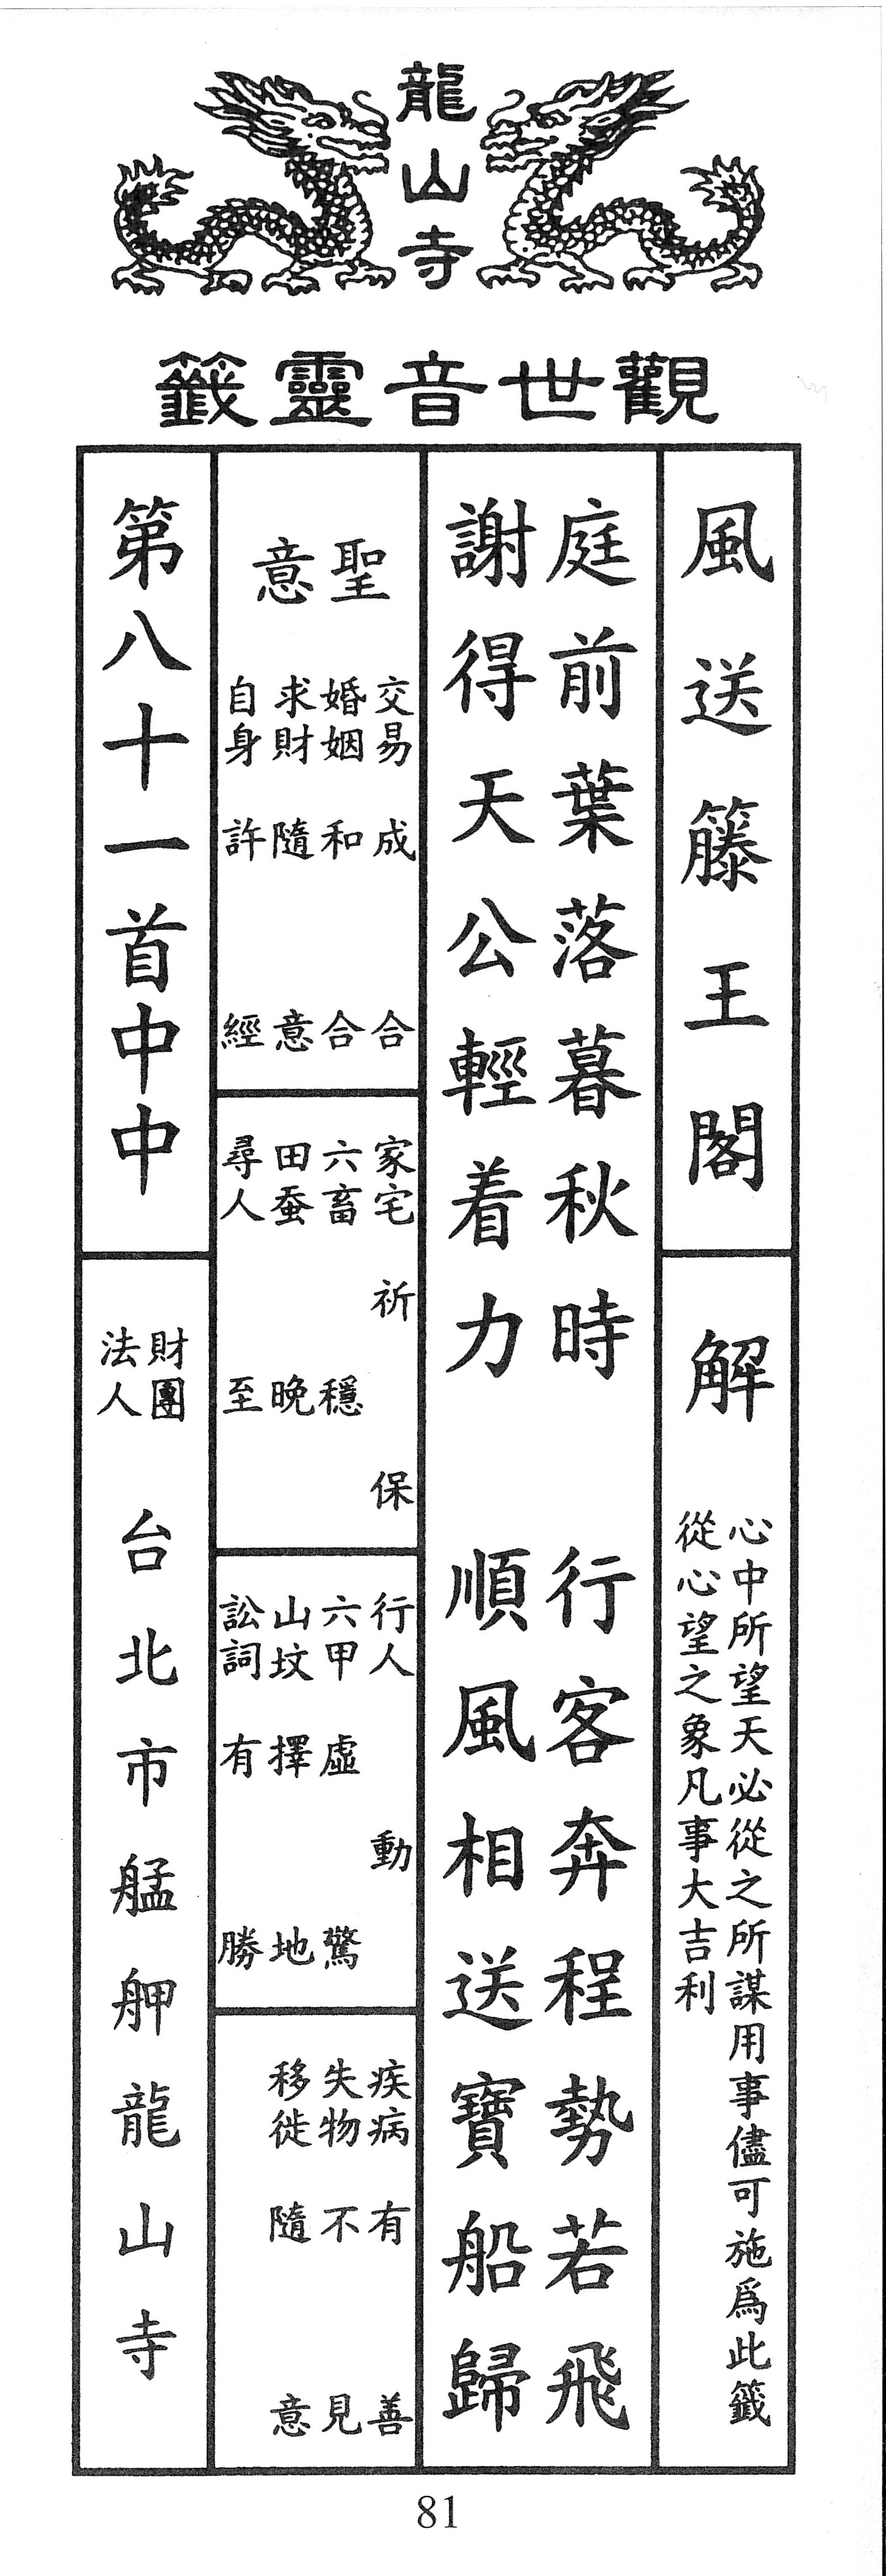 龍山寺
觀世音靈籤
風送籐王閣
解
心中所望天必從之所謀用事儘可施爲此籤
從心望之象凡事大吉利
庭前葉落暮秋時　行客奔程勢若飛
謝得天公輕着力　順風相送寶船歸
聖意
交易　成合
婚姻　和合
求財　隨意
自身　許經
家宅　祈保
六畜　穩
田蚕　晚
尋人　至
行人　動
六甲　虛驚
山坟　擇地
訟詞　有勝
疾病　有善
失物　不見
移徙　隨意
第八十一首中中
財團法人
台北市艋舺龍山寺
81